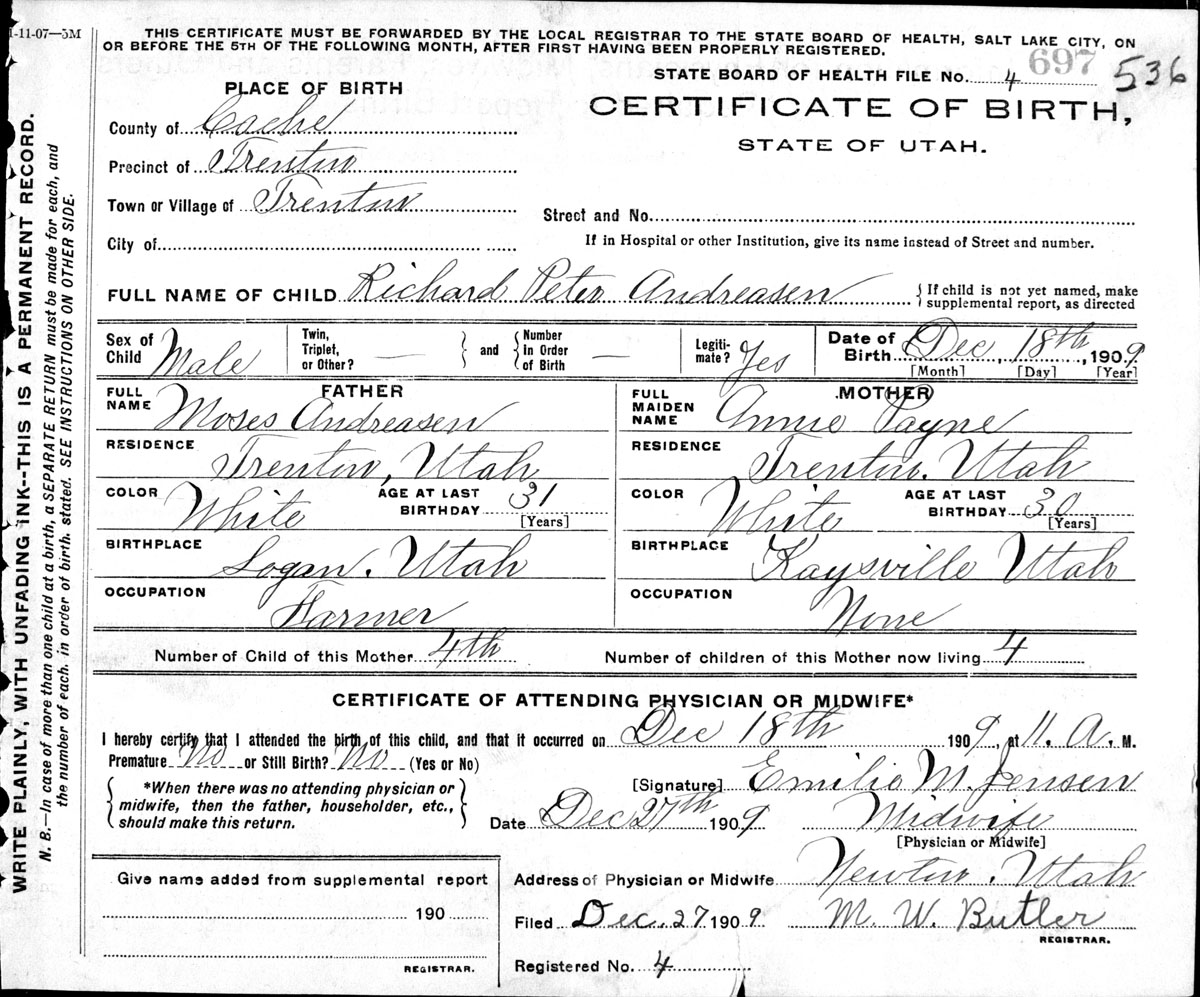 1-11-07—5M
THIS CERTIFICATE MUST BE FORWARDED BY THE LOCAL REGISTRAR TO THE STATE BOARD OF HEALTH, SALT LAKE CITY, ON
OR BEFORE THE 5TH OF THE FOLLOWING MONTH, AFTER FIRST HAVING BEEN PROPERLY REGISTERED.
STATE BOARD OF HEALTH FILE No. 4 697 536
PLACE OF BIRTH
CERTIFICATE OF BIRTH,
STATE OF UTAH.
County of Cache
Precinct of Trenton
Town or Village of Trenton
Street and No.
City of
If in Hospital or other Institution, give its name instead of Street and number.
FULL NAME OF CHILD Richard Peter Andreasen { If child is not yet named, make
supplemental report, as directed
Sex of Child Male
Twin, Triplet, or Other? — } and { Number in Order of Birth —
Legiti-mate? Yes
Date of Birth Dec, 18th, 1909
[Month] [Day] [Year]
FATHER
FULL NAME Moses Andreasen
RESIDENCE Trenton, Utah
COLOR White AGE AT LAST BIRTHDAY 31
[Years]
BIRTHPLACE Logan, Utah
OCCUPATION Farmer
MOTHER
FULL MAIDEN NAME Annie Payne
RESIDENCE Trenton, Utah
COLOR White AGE AT LAST BIRTHDAY 30
[Years]
BIRTHPLACE Kaysville Utah
OCCUPATION None
Number of Child of this Mother 4th Number of children of this Mother now living 4
CERTIFICATE OF ATTENDING PHYSICIAN OR MIDWIFE*
I hereby certify that I attended the birth of this child, and that it occurred on Dec 18th 1909, at 11. A. M.
Premature No or Still Birth? No (Yes or No)
*When there was no attending physician or
midwife, then the father, householder, etc.,
should make this return.
[Signature] Emilie M. Jensen
Date Dec 27th 1909 Midwife
[Physician or Midwife]
Address of Physician or Midwife Newton, Utah
Filed Dec. 27 1909 M. W. Butler
REGISTRAR.
Registered No. 4
Give name added from supplemental report
190
REGISTRAR.
WRITE PLAINLY, WITH UNFADING INK--THIS IS A PERMANENT RECORD.
N. B.—In case of more than one child at a birth, a SEPARATE RETURN must be made for each, and
the number of each, in order of birth, stated. SEE INSTRUCTIONS ON OTHER SIDE.